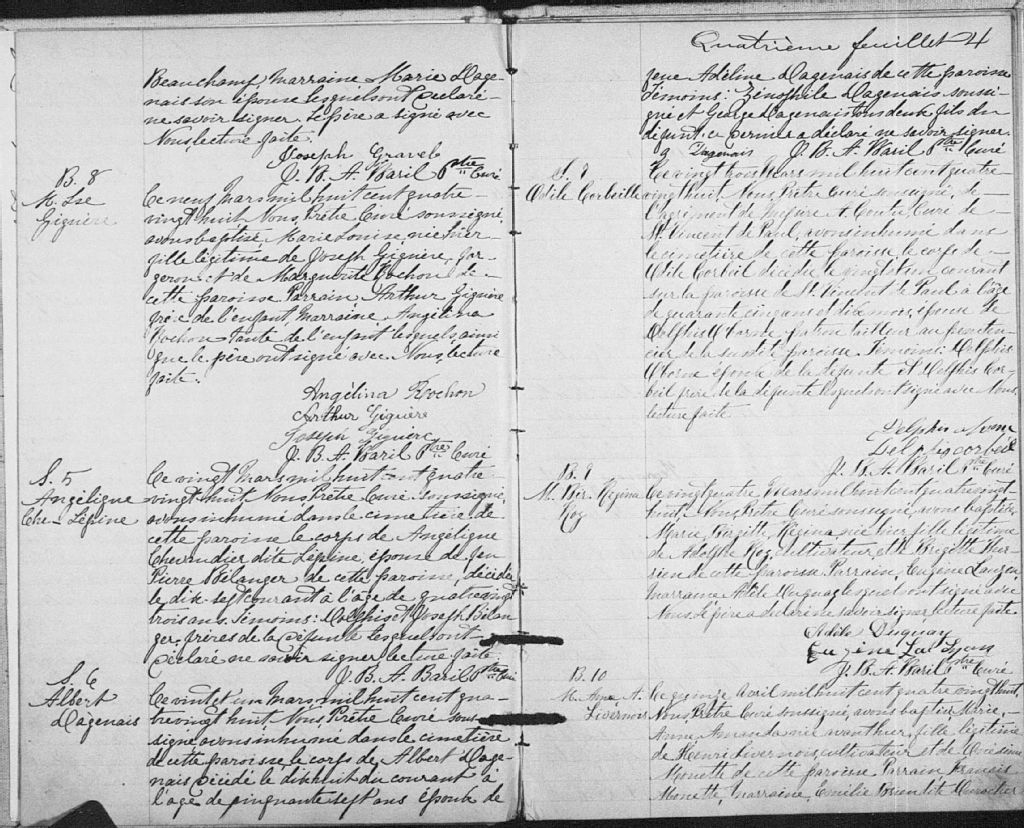 Beauchamp, Marraine Marie Dage-
nais son épouse lesquels ont déclaré
ne savoir signer. Le père a signé avec
Nous lecture faite.
Joseph Gravel
J. B. A. Baril Ptre Curé
B. 8
M. Lse
Giguère
Ce neuf Mars mil huit cent quatre-
vingt huit Nous Prêtre Curé soussigné
avons baptisé Marie Louise, née hier
fille légitime de Joseph Giguère, for-
geron et de Marguerite Rochon de
cette paroisse Parrain, Arthur Giguère
frère de l'enfant, Marraine Angélina
Rochon tante de l'enfant lesquels ainsi
que le père ont signé avec Nous lecture
faite.
Angélina Rochon
Arthur Giguère
Joseph Giguère
J. B. A. Baril Ptre Curé
S. 5
Angélique
Che- Lépine
Ce vingt Mars mil huit cent quatre-
vingt huit Nous Prêtre Curé soussigné
avons inhumé dans le cimetière de
cette paroisse le corps de Angélique
dite Lépine, épouse de feu
Pierre Bélanger de cette paroisse, décédée
le dix-sept courant à l'âge de quatre vingt
trois ans. Témoins: Delphis et Joseph Bélan-
ger, frères de la défunte lesquels ont
déclaré ne savoir signer lecture faite
J. B. A. Baril Ptre Curé
S. 6
Albert
Dagenais
Ce vingt et un Mars mil huit cent qua-
tre vingt huit Nous Prêtre Curé sous-
signé avons inhumé dans le cimetière
de cette paroisse le corps de Albert Dage-
nais décédé le dix huit du courant à
l'âge de cinquante sept ans époux de
Quatrième feuillet 4
feue Adéline Dagenais de cette paroisse
Témoins: Zénophile Dagenais soussi-
gné et George Dagenais tous deux fils du
défunt; ce dernier a déclaré ne savoir signer.
Dagenais J. B. A. Baril Ptre Curé
S. 7
Odile Corbeille
Ce vingt trois Mars mil huit cent quatre
vingt huit, Nous Prêtre Curé soussigné, de
l'agrément de Messire A. Coutu, Curé de
St. Vincent de Paul, avons inhumé dans
le cimetière de cette paroisse le corps de
Odile Corbeil décédée le vingt et un courant
sur la paroisse de St. Vincent de Paul à l'âge
de quarante cinq ans et dix mois, épouse de
Delphis tailleur au péniten-
cier de la susdite paroisse Témoins: Delphis
époux de la défunte et Delphis Cor-
beil frère de la défunte lesquels ont signé avec Nous
lecture faite
Delphis
Delphis corbeil
J. B. A. Baril Ptre Curé
B. 9
M. Bir. Regina
Roy
Ce vingt quatre Mars mil huit cent quatre vingt
huit, Nous Prêtre Curé soussigné, avons baptisé,
Marie, Brigitte, Regina née hier, fille légitime
de Adolphe Roy cultivateur et de Brigitte
de cette paroisse Parrain, Eugène
marraine Adèle Duquay lesquels ont signé avec
Nous, le père a déclaré ne savoir signer, lecture faite.
Adèle Duquay
Eugène
J. B. A. Baril Ptre Curé
B. 10
M. Anna A.
Livernois
Ce quinze Avril mil huit cent quatre vingt huit,
Nous, Prêtre Curé soussigné, avons baptisé Marie,
Anna, Amanda née avant hier, fille légitime
de Henri Livernois, cultivateur et de Onésime
Monette de cette paroisse Parrain François
Monette, Marraine, Emélie Brien dite Durocher